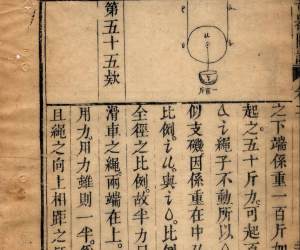 之下端係重一百斤如
起之五十斤力可起
繩子不動所以
似支磯因係重在中
比例
全徑之比例故半力
滑車之繩兩端在上
用力用力雖則一半
且繩之向上相距之
第五十五欵